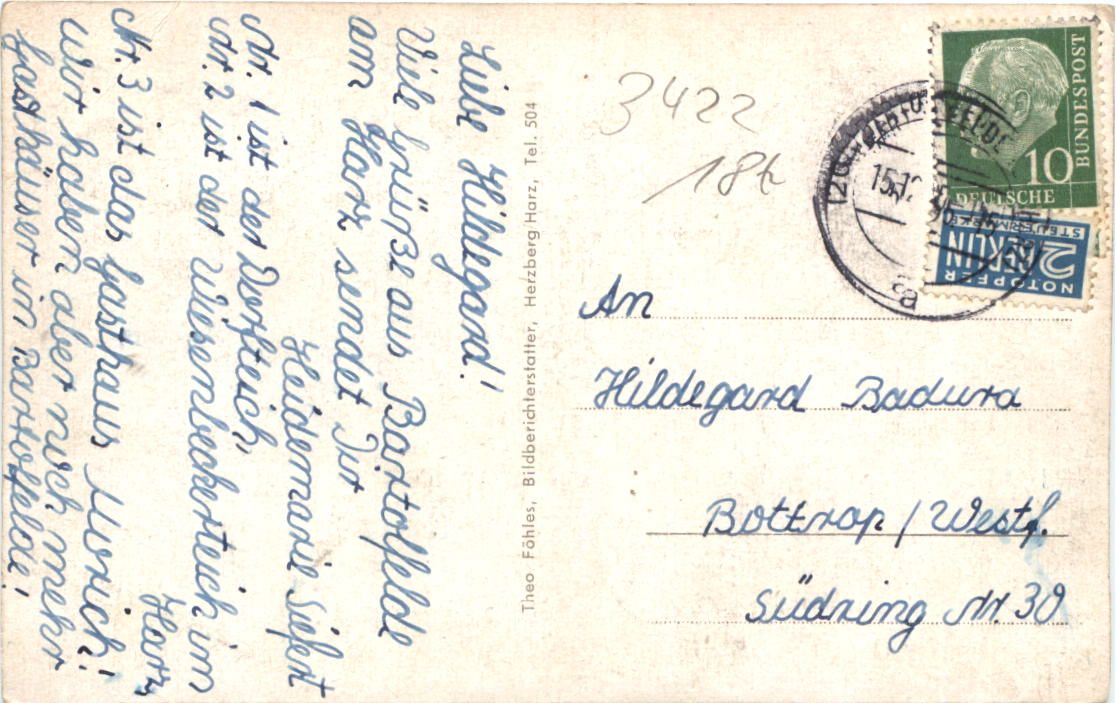 Liebe Hildegard!
Viele Grüße aus Bartolfelde
am Harz sendet Dir
Heidemarie Siefert
Nr. 1 ist der Dorfteich,
Nr. 2 ist der Wiesenbeckerteich im
Harz,
Nr. 3 ist das Gasthaus Morich!
Wir haben aber noch mehr
Gasthäuser in Bartolfelde!
Theo Föhles, Bildberichterstatter, Herzberg Harz, Tel. 504
3422
18t
DEUTSCHE
BUNDESPOST
10
NOTOPFER
2 BERLIN
STEUERMARKE
15.12
a
An
Hildegard Badura
Bottrop / Westf.
Südring Nr. 39